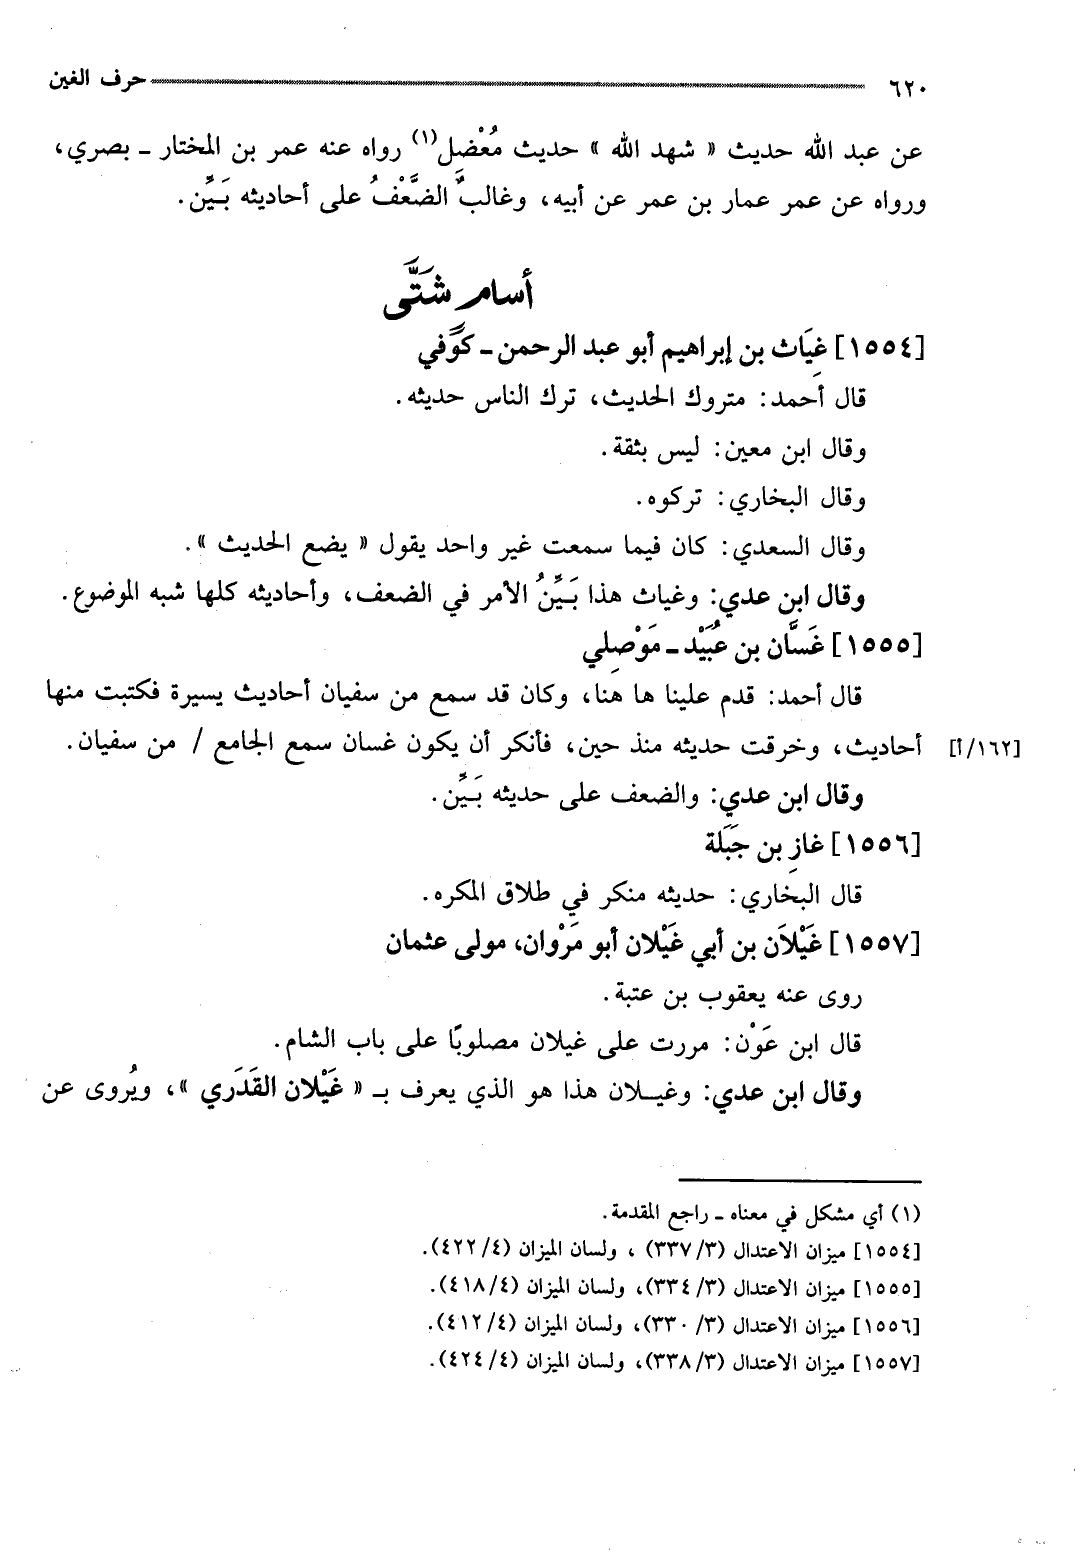 ٦٢٠ حرف الغين
عن عبد الله حديث « شهد الله » حديث مُعْضِل(١) رواه عنه عمر بن المختار ـ بصري،
ورواه عن عمر عمار بن عمر عن أبيه، وغالبُ الضَّعْفُ على أحاديثه بَيِّن.
أسام شَتَّى
[١٥٥٤] غِيَاث بن إبراهيم أبو عبد الرحمن ـ كُوفي
قال أحمد: متروك الحديث، ترك الناس حديثه.
وقال ابن معين: ليس بثقة.
وقال البخاري: تركوه.
وقال السعدي: كان فيما سمعت غير واحد يقول « يضع الحديث ».
وقال ابن عدي: وغياث هذا بَيِّنُ الأمر في الضعف، وأحاديثه كلها شبه الموضوع.
[١٥٥٥] غَسَّان بن عُبَيْد ـ مَوْصِلي
قال أحمد: قدم علينا ها هنا، وكان قد سمع من سفيان أحاديث يسيرة فكتبت منها
أحاديث، وخرقت حديثه منذ حين، فأنكر أن يكون غسان سمع الجامع / من سفيان. [١٦٢/أ]
وقال ابن عدي: والضعف على حديثه بَيِّن.
[١٥٥٦] غازِ بن جَبَلة
قال البخاري: حديثه منكر في طلاق المكره.
[١٥٥٧] غَيْلاَن بن أبي غَيْلان أبو مَرْوان، مولى عثمان
روى عنه يعقوب بن عتبة.
قال ابن عَوْن: مررت على غيلان مصلوبًا على باب الشام.
وقال ابن عدي: وغيـلان هذا هو الذي يعرف بـ « غَيْلان القَدَري »، ويُروى عن
(١) أي مشكل في معناه ـ راجع المقدمة.
[١٥٥٤] ميزان الاعتدال (٣/ ٣٣٧) ، ولسان الميزان (٤/ ٤٢٢).
[١٥٥٥] ميزان الاعتدال (٣/ ٣٣٤)، ولسان الميزان (٤/ ٤١٨).
[١٥٥٦] ميزان الاعتدال (٣/ ٣٣٠)، ولسان الميزان (٤/ ٤١٢).
[١٥٥٧] ميزان الاعتدال (٣/ ٣٣٨)، ولسان الميزان (٤/ ٤٢٤).